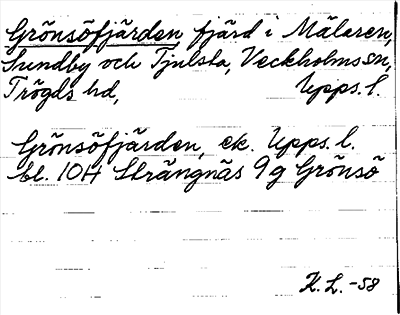 Grönsöfjärden fjärd i Mälaren,
Sundby och Tjulsta, Veckholms sn,
Trögds hd, Upps. l.
Grönsöfjärden, ek. Upps. l.
bl. 10H Strängnäs 9g Grönsö
K. L. -58